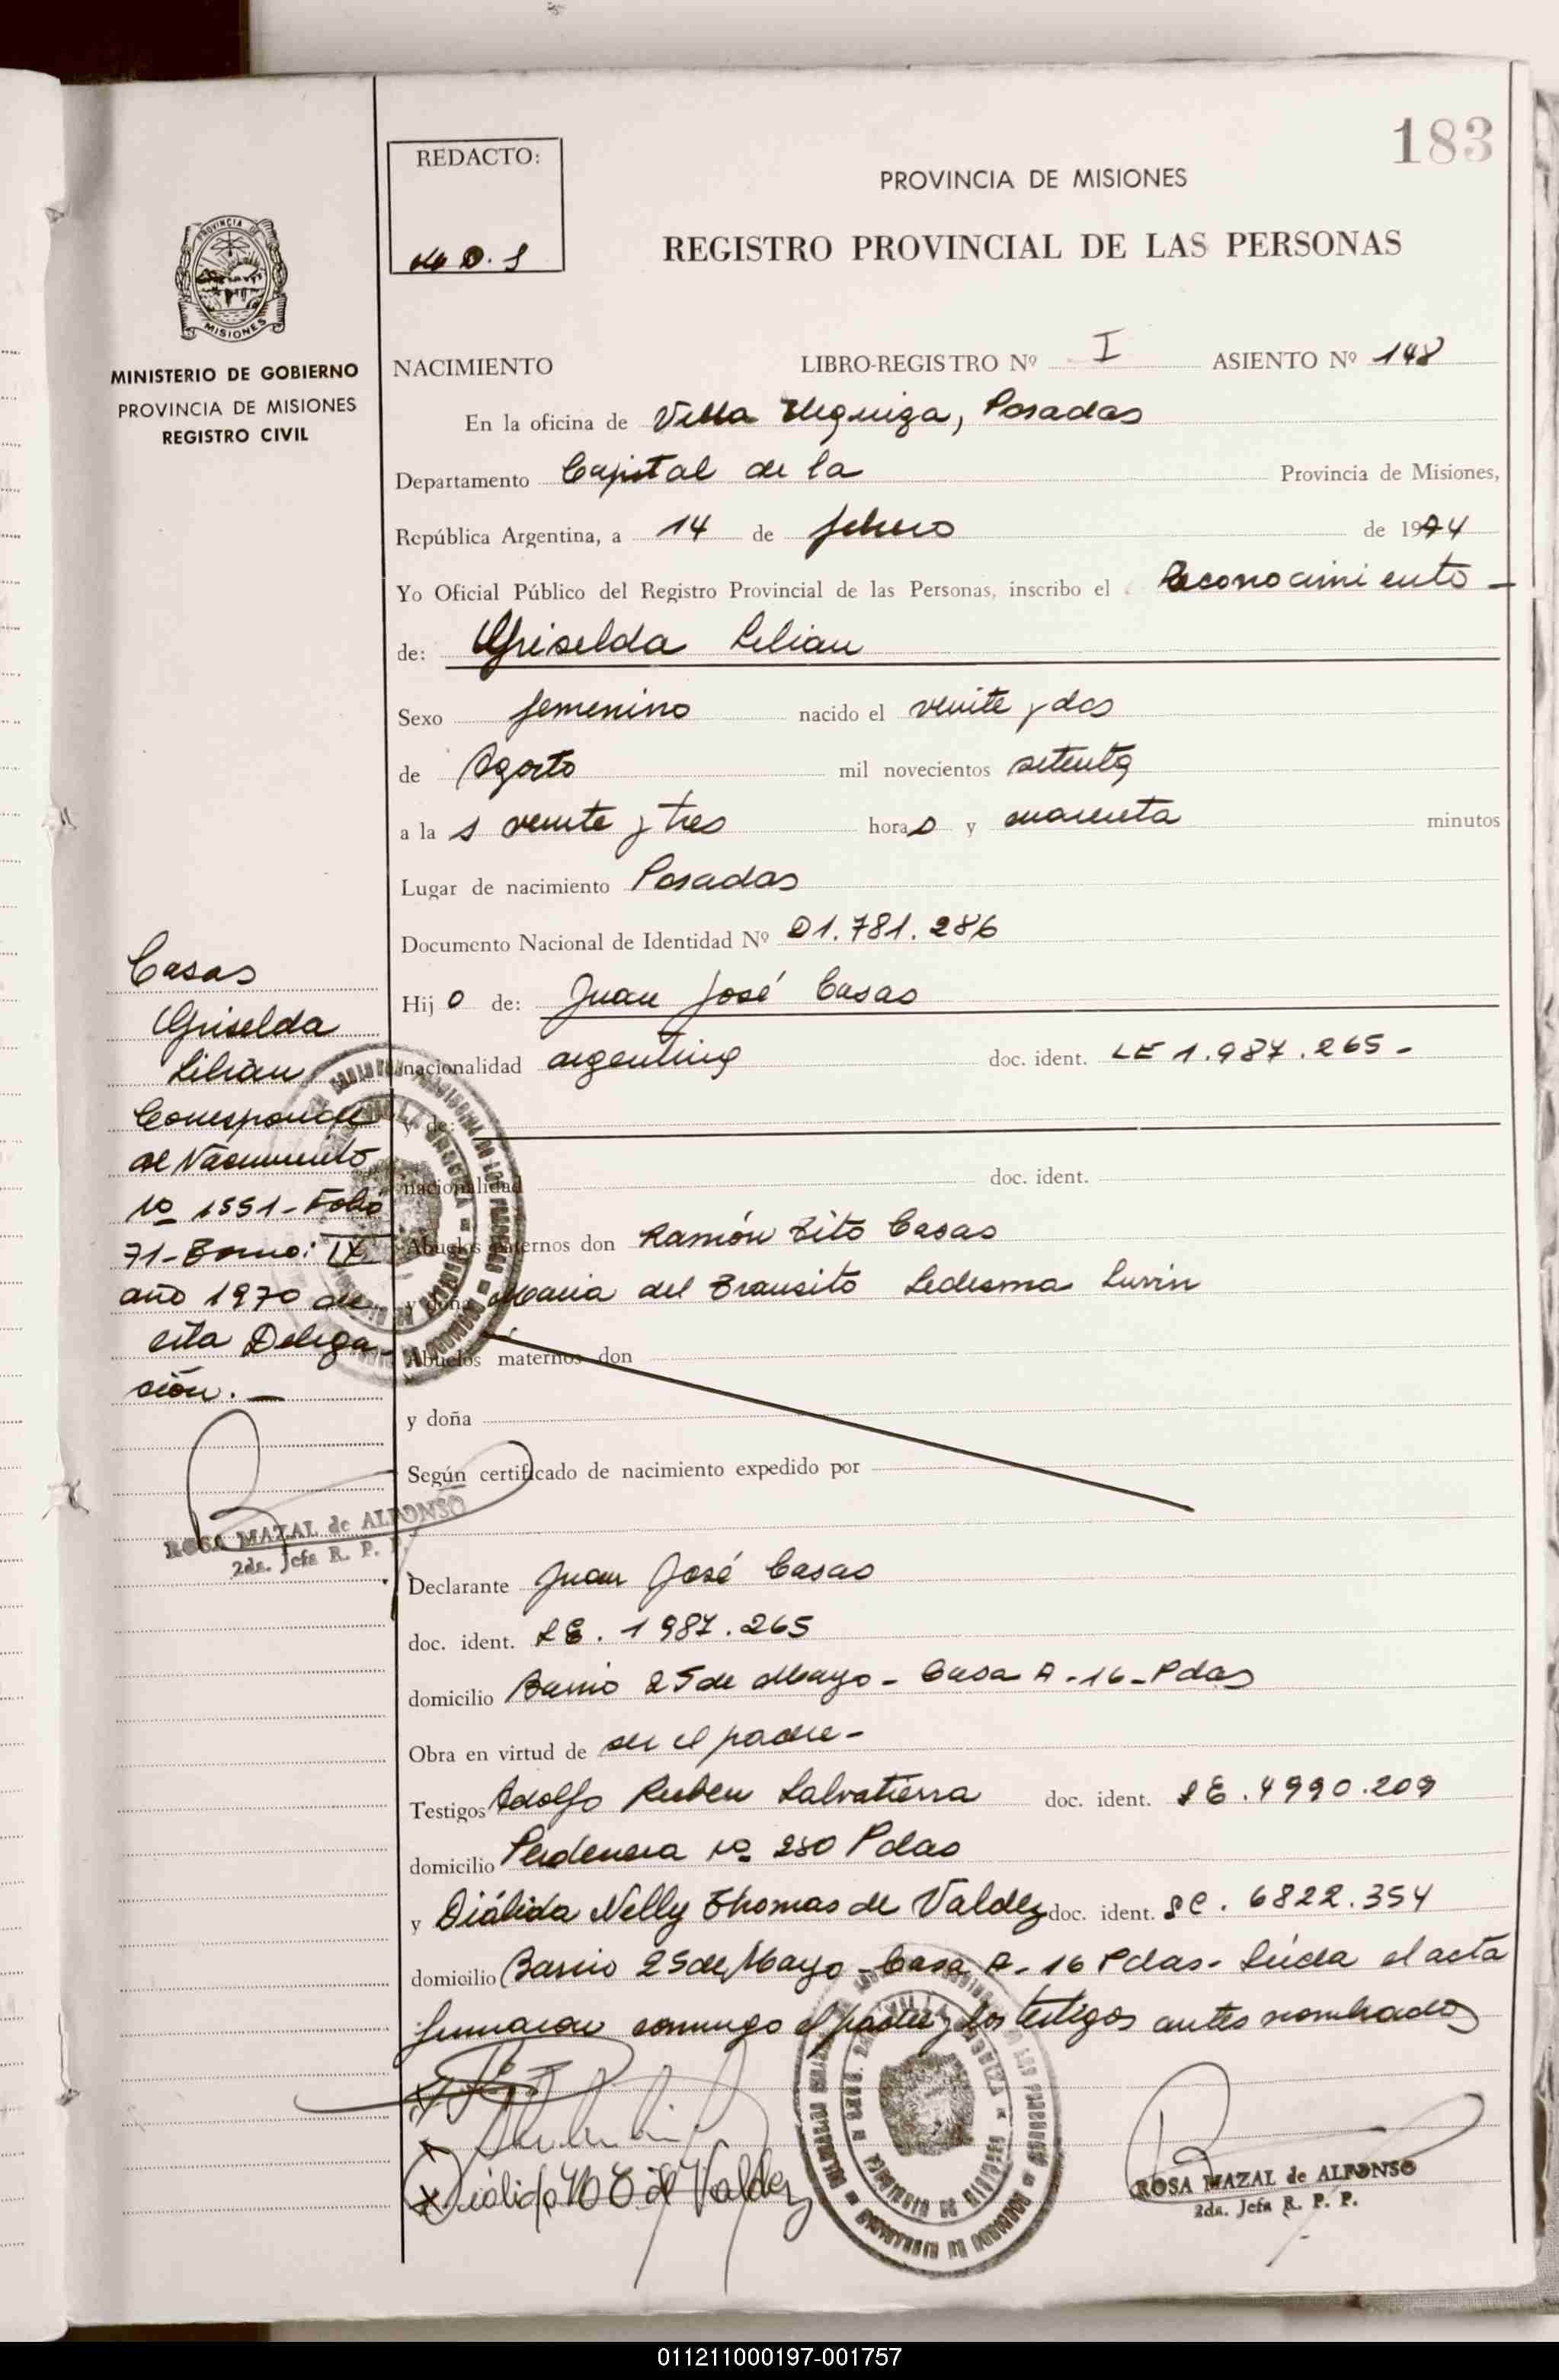 183
REDACTO:
PROVINCIA DE MISIONES
REGISTRO PROVINCIAL DE LAS PERSONAS
MINISTERIO DE GOBIERNO
PROVINCIA DE MISIONES
REGISTRO CIVIL
NACIMIENTO LIBRO-REGISTRO Nº I ASIENTO Nº 148
En la oficina de Villa Urquiza, Posadas
Departamento Capital de la Provincia de Misiones,
República Argentina, a 14 de febrero de 1974
Yo Oficial Público del Registro Provincial de las Personas, inscribo el Reconocimiento -
de: Griselda Lilian
Sexo femenino nacido el veinte y dos
de Agosto mil novecientos setenta
a la s veinte y tres hora s y cuarenta minutos
Lugar de nacimiento Posadas
Documento Nacional de Identidad Nº 21.781.286
Hij o de: Juan José Casas
nacionalidad argentina doc. ident. LE 1.987.265 -
y de:
nacionalidad doc. ident.
Abuelos paternos don Ramón Tito Casas
y doña Maria del Transito Ledesma
Abuelos maternos don
y doña
Según certificado de nacimiento expedido por
Casas
Griselda
Lilian
Corresponde
al Nacimiento
Nº 1551 - Folio
71 - Tomo: IX
año 1970 de
esta Delega-
ción. -
ROSA MAZAL de ALFONSO
2da. Jefa R. P. P.
Declarante Juan José Casas
doc. ident. LE. 1987.265
domicilio Barrio 25 de Mayo - Casa A - 16 - Pdas
Obra en virtud de ser el padre -
Testigos Adolfo Ruben Salvatierra doc. ident. LE. 4990.209
domicilio Nº 280 Pdas
y Diálida Nelly Thomas de Valdez doc. ident. LC. 6822.354
domicilio Barrio 25 de Mayo - Casa A - 16 Pdas - Leída el acta
firmaron conmigo el padre y los testigos antes nombrados
Diálida N T de Valdez
ROSA MAZAL de ALFONSO
2da. Jefa R. P. P.
011211000197-001757